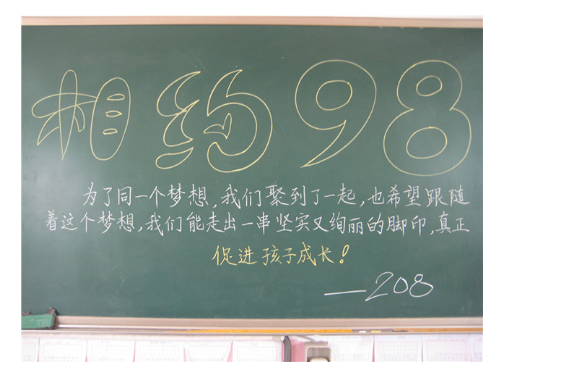 相约98
为了同一个梦想,我们聚到了一起,也希望跟随
着这个梦想,我们能走出一串坚实又绚丽的脚印,真正
促进孩子成长!
—208